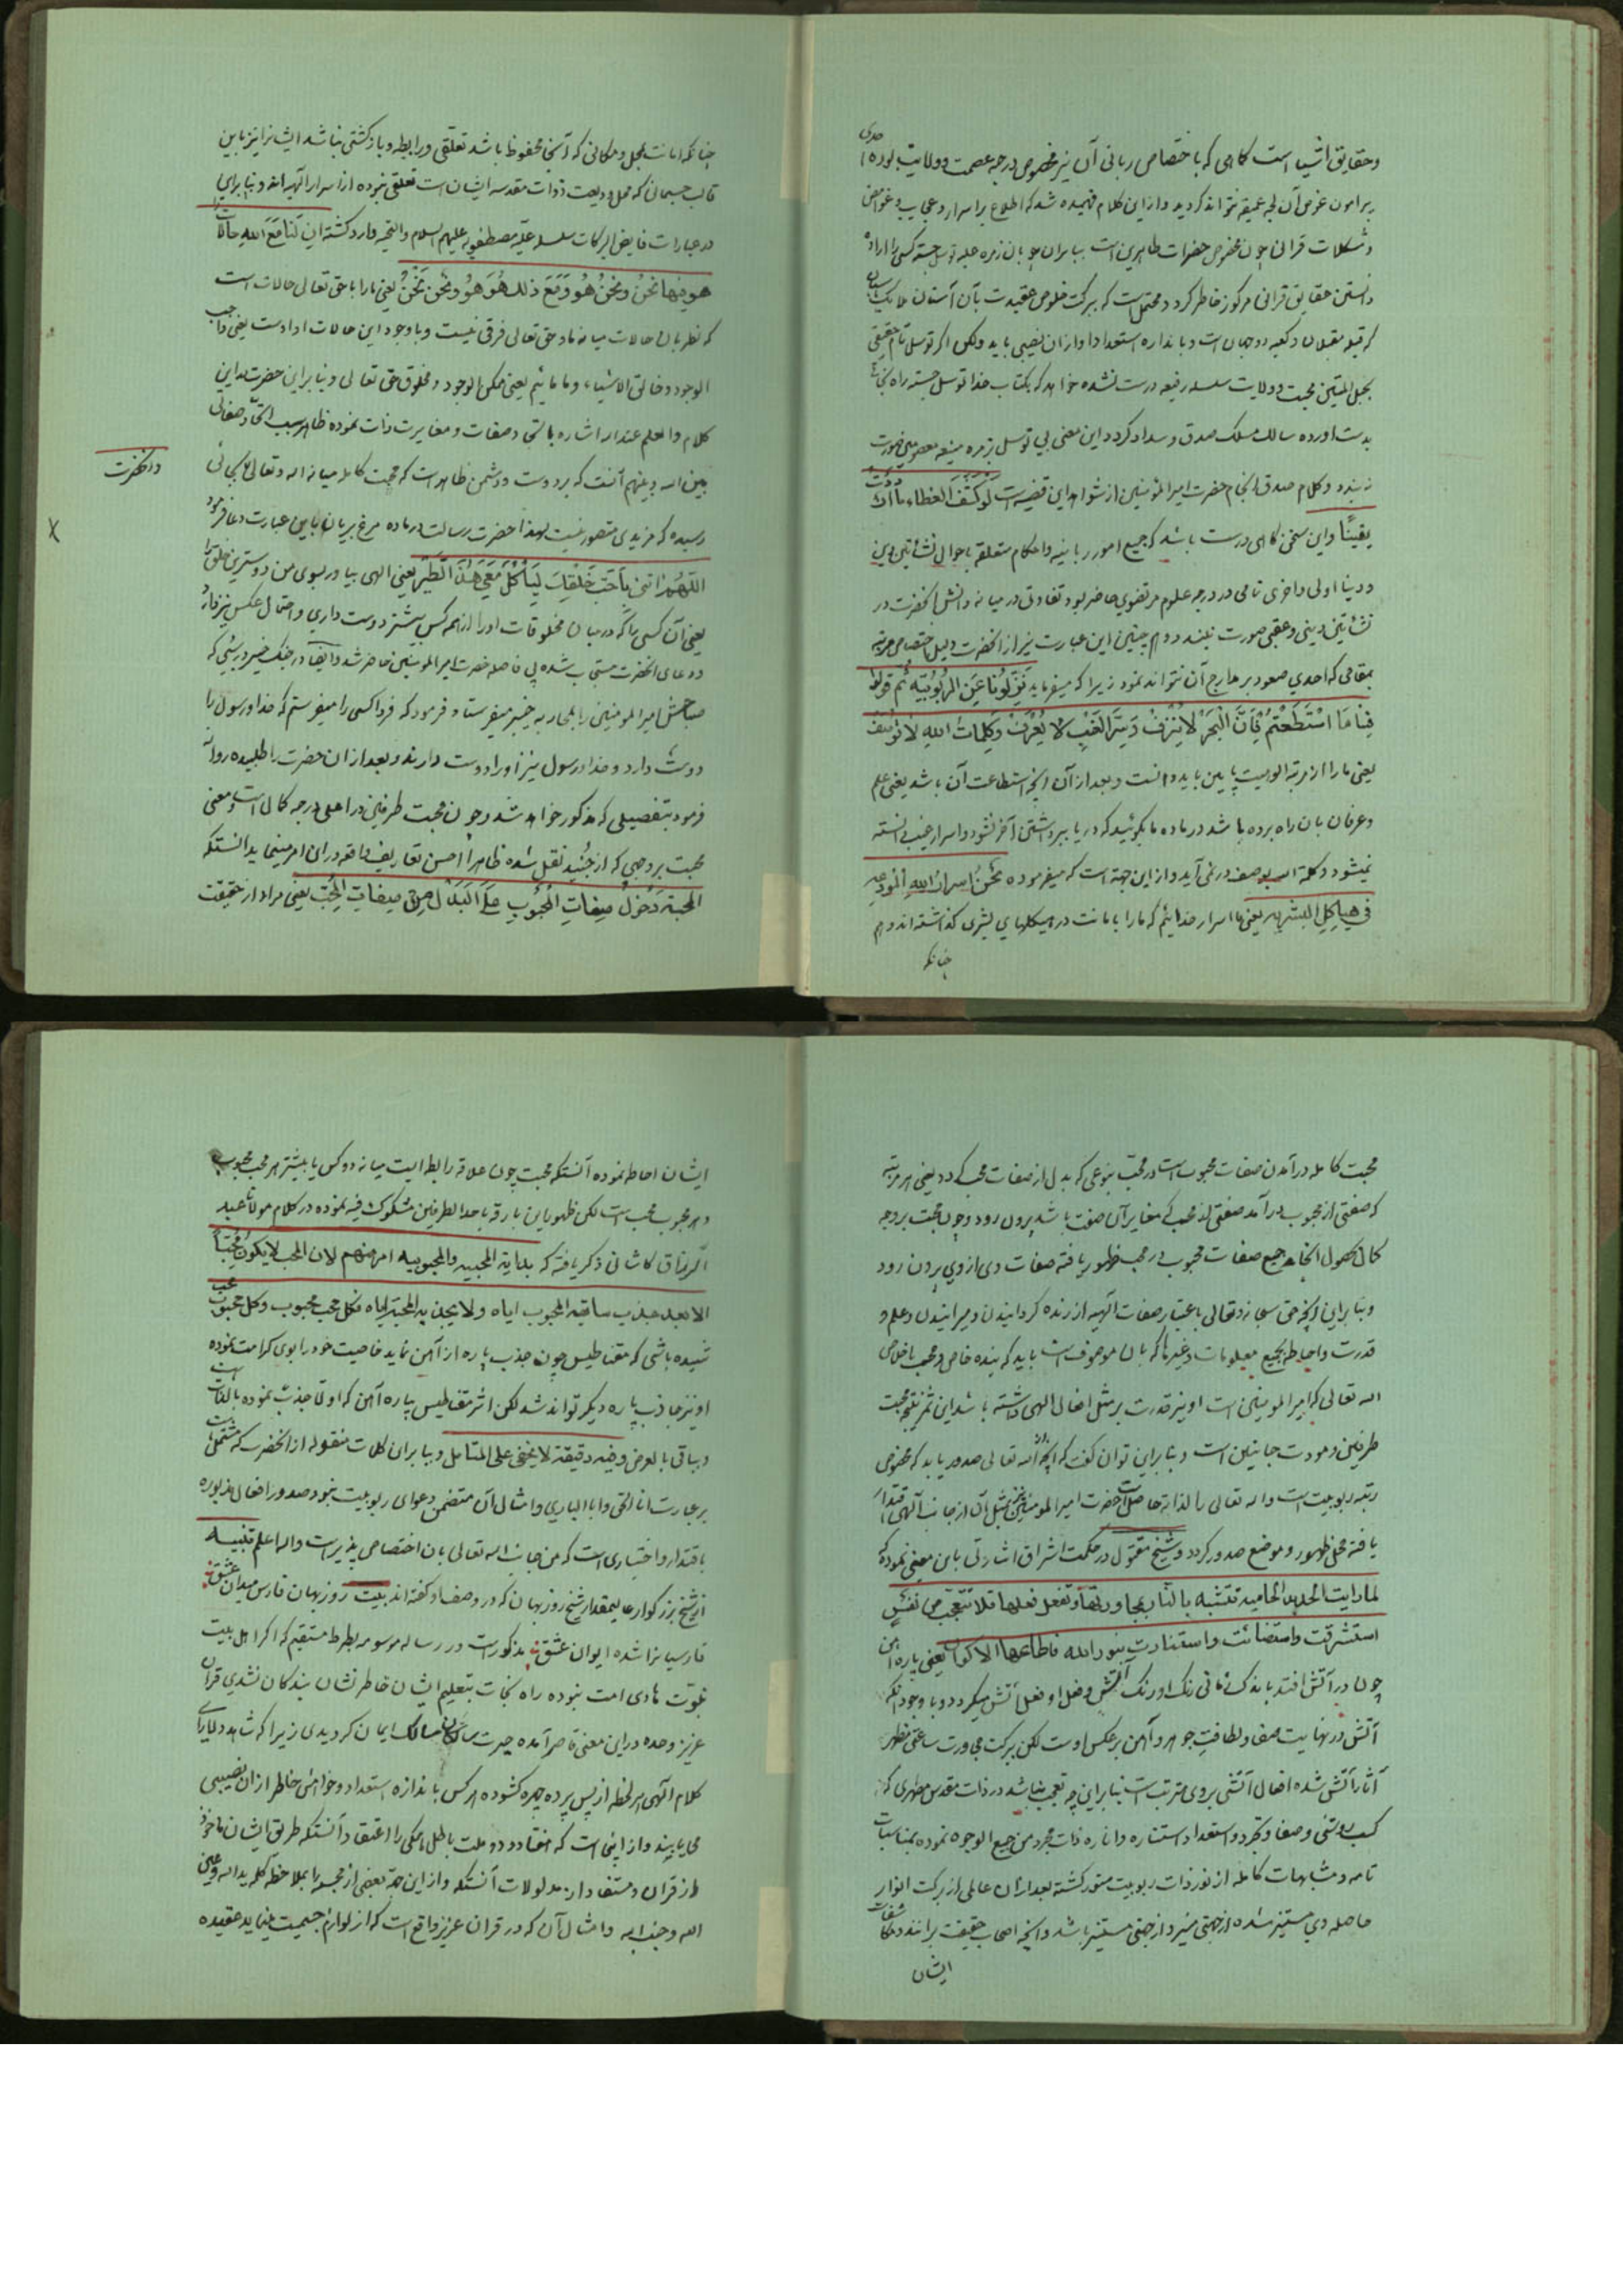 وحقایق اشیا است کاهی که باختصاص ربانی آن نیز مخصوص درجه عصمت وولایت بوده احدی
پیرامون غوص آن لجه عمیقه نتواند کردید واز این کلام فهمیده شد که اطلاع بر اسرار وعجایب وغوامض
ومشکلات قرانی چون مخصوص حضرات طاهرین است بنابران چو بان زمره علیه توسل جسته کسی را اراده
دانستن حقایق قرانی مرکوز خاطر کردد محتمل است که ببرکت خلوص عقیدت بآن آستان ملایک
که قبله مقبلان وکعبه دوجهان است وباندازه استعداد او ازان نصیبی یابد ولکن اکر توسل تام حقیقی
بحبل المتین محبت وولایت سلسله رفیعه درست نشده خواهد که بکتاب خدا توسل جسته راه نجات
بدست اورده سالک مسلک صدق وسداد کردد این معنی بی توسل بزمره منیعه معصومین صورت
نبندد وکلام صدق انجام حضرت امیرالمؤمنین از شواهد این قضیه است لَو کُشِفَ الغطاء ما ازددتُ
یقینًا واین سخن کاهی درست باشد که جمیع امور ربانیه واحکام متعلقه باحوال نشأتین دین
ودنیا اولی واخری تمامی در درجه علوم مرتضوی حاضر بود تفاوتی در میانه دانش انحضرت در
نشأتین دینی وعقبی صورت نبندد وهم چنین این عبارت نیز از انحضرت دلیل اختصاص مرتبه
بمقامی که احدی صعود بر مدارج آن نتواند نمود زیرا که میفرماید نَزِّلُونا عَنِ الرُّبُوبِیّة ثم قولوا
فینا مَا اسْتَطَعْتُم فَاِنَّ الْبَحْرَ لا یُنْزَفْ وَسِرَّ الغَیْبِ لا یُعْرَفْ وکلِماتُ اللهِ لا توصَف
یعنی ما را از مرتبه الوهیت پایین باید دانست وبعد از آن آنچه استطاعت آن باشد یعنی علم
وعرفان بان راه برده باشد در ماده ما بکوئید که دریا ببرداشتن آخر نشود واسرار غیب دانسته
نمیشود وکلمة الله بوصف در نمی آید واز این جهة است که میفرموده نَحْنُ اسرارُ اللهِ المُودَعَة
فی هیاکِلِ البشریه یعنی ما اسرار خدائیم که ما را بامانت در هیکلهای بشری کذاشته اند وهم
چنانکه
چنانکه امانت بمحل ومکانی که آنجا محفوظ باشد تعلقی ورابطه وبازکشتی نباشد ایشانرا نیز باین
قالب جسمانی که محل ودیعت ذوات مقدسه ایشان است تعلقی نبوده از اسرار الهیه اند وبنابراین
در عبارات فایض البرکات سلسله علیه مصطفویه علیهم السلام والتحیه وارد کشته ان لَنا مَعَ اللهِ حالات
هو فیها نحنُ ونحنُ هُوَ ومَعَ ذلک هُوَ هُوَ ونَحْنُ نَحْنُ یعنی ما را با حق تعالی حالات است
که نظر بان حالات میانه ما وحق تعالی فرقی نیست وباوجود این حالات او اوست یعنی واجب
الوجود وخالق الاشیاء وما مائیم یعنی ممکن الوجود ومخلوق حق تعالی وبنابراین حضرت باین
کلام والعلم عند الله اشاره باتحاد صفات ومغایرت ذات نموده ظاهر سبب اتحاد صفاتی
بین الله وبینهم آنست که بر دوست ودشمن ظاهر است که محبت کامله میانه الله وتعالی بجائی
وانحضرت
رسیده که مزیدی متصور نیست لهذا حضرت رسالت در ماده مرغ بریان باین عبارت دعا فرمود
اللّهُمَّ ائتنی بأحَبِّ خَلْقِکَ لِیَأْکُلَ مَعی هٰذَا الطَّیْر یعنی الهی بیاور بسوی من دوسترین خلق را
یعنی آن کسی را که در میان مخلوقات اورا از همه کس بیشتر دوست داری واحتمال عکس نیز دارد
ودعای انحضرت مستجاب شده بی فاصله حضرت امیرالمؤمنین حاضر شد وایضا در جنک خیبر در شبی که
صباحش امیرالمومنین را بمحاربه خیبر میفرستاد فرمود که فردا کسی را میفرستم که خدا ورسول را
دوست دارد وخدا ورسول نیز اورا دوست دارند وبعد از ان حضرت را طلبیده روانه
فرمود بتفصیلی که مذکور خواهد شد وچون محبت طرفین در اعلی درجه کمال است ومعنی
محبت بروجهی که از جُنید نقل شده ظاهرا احسن تعاریف واقعه دران امر مینماید انستکه
المحبة دُخُولُ صِفاتِ المَحْبُوبِ عَلَی البَدَلِ مِنْ صِفاتِ المُحِبّ یعنی مراد از حقیقت
محبت کامله درآمدن صفات محبوب است در محب بنوعی که بدل از صفات محب کردد یعنی هر مرتبه
که صفتی از محبوب درآمد صفتی از محب که مغایر آن صفت باشد بیرون رود وچون محبت بروجه
کمال حصول انجامد جمیع صفات محبوب در محب ظهور یافته صفات وی از وی بیرون رود
وبنابراین آنچه حق سبحانه وتعالی باعتبار صفات الهیه از زنده کردانیدن ومیرانیدن وعلم و
قدرت واحاطه بجمیع معلومات وغیرها که بان موصوف است باید که بنده خاص ومحب باخلاص
الله تعالی که امیرالمومنین است او نیز قدرت بر مثل افعال الهی داشته باشد این ثمر نتیجه محبت
طرفین ومودت جانبین است وبنابراین توان کفت که آنچه از الله تعالی صدور یابد که مخصوص
رتبه ربوبیت است والله تعالی را لذاته حاصل است حضرت امیرالمومنین نیز بمثل آن از جانب الهی اقتدار
یافته محل ظهور وموضع صدور کردد وشیخ مقتول در حکمت اشراق اشارتی باین معنی نموده که
لما رایت الحدیدة الحامیة تتشبه بالنار بمجاورتها وتفعل فعلها فلا تتعجب من نفسٍ
استشرقت واستضائت واستنارت بنور الله فاطاعها الاکوان یعنی پاره آهن
چون در آتش افتد باندک زمانی رنک او رنک آتش وفعل او فعل آتش میکردد وباوجود آنکه
آتش در نهایت صفا ولطافت جوهر وآهن برعکس اوست لکن ببرکت مجاورت ساعتی مظهر
آثار آتش شده افعال آتشی بر وی مترتب است بنابراین چه تعجب نباشد در ذات مقدس مطهری که
کسب روشنی وصفا وتجرد واستعداد استناره واناره ذات مجرد من جمیع الوجوه نموده بمناسبات
تامه ومشابهات کامله از نور ذات ربوبیت متنور کشته بعد ازان عالمی از برکت انوار
حاصله وی مستنیر شده از جهتی منیر واز جهتی مستنیر باشد وآنچه اصحاب حقیقت برانند ومکاشفات
ایشان
ایشان احاطه نموده آنستکه محبت چون علاقه رابطه ایست میانه دو کس یا بیشتر هر محب محبوب
وهر محبوب محب است لکن ظهور این بارقه باحد الطرفین مشکوک فیه نموده در کلام مولانا عبد
الرزاق کاشانی ذکر یافته که بدایة المحبیه والمحبوبیه امر مبهم لان المحب لا یکونُ مُحِبّاً
الا بعد جذب سابقة المحبوب ایاه ولا یجذبه المحبة ایاه فکل محب محبوب وکل محبوب محب
شنیده باشی که مقناطیس چون جذب پاره از آهن نماید خاصیت خود را بوی کرامت نموده
او نیز جاذب پاره دیکر تواند شد لکن اثر مقناطیس بپاره آهن که اولا جذب نموده بالذات است
وبباقی بالعرض وفیه دقیقة لا یخفی علی المتامل وبنابران کلمات منقوله از انحضرت که مشتمل است
بر عبارت انا الحی وانا الباری وامثال آن متضمن دعوای ربوبیت نبود صدور افعال مذبوره
باقتدار واختیاری است که من جانب الله تعالی بان اختصاص پذیر است والله اعلم تنبیه
از شیخ بزرکوار عالیمقدار شیخ روزبهان که در وصف او کفته اند بیت روزبهان فارس میدان عشق
فارسیانرا شده ایوان عشق مذکورست در رساله مرسومه بطریط مستقیم که اکر اهل بیت
نبوّت هادی امت نبوده راه نجات بتعلیم ایشان خاطرنشان بندکان نشدی قران
عزیز وحده در این معنی قاصر آمده حیرت سالکان مسالک ایمان کردیدی زیرا که شاهد دلارای
کلام الهی هر لحظه از پس پرده چهره کشوده هر کس باندازه استعداد وخواهش خاطر از ان نصیبی
می یابند واز اینجا است که هفتاد ودو ملت باطل همکی را اعتقاد آنستکه طریق ایشان ماخوذ
از قران ومستفاد از مدلولات آنستکه واز این جهة بعضی از مجسمه را بملاحظه کلمه ید الله وعین
الله وجنب الله وامثال آن که در قران عزیز واقع است که از لوازم جسمیت مینماید عقیده